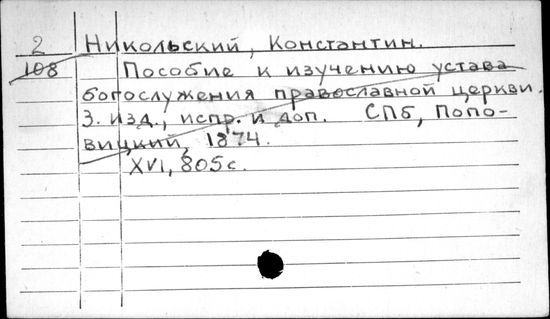 2 Никольский, Константин.
108 Пособие к изучению устава
богослужения православной церкви.
3. изд., испр. и доп. СПб, Попо-
вицкий, 1874.
XVI, 805 с.